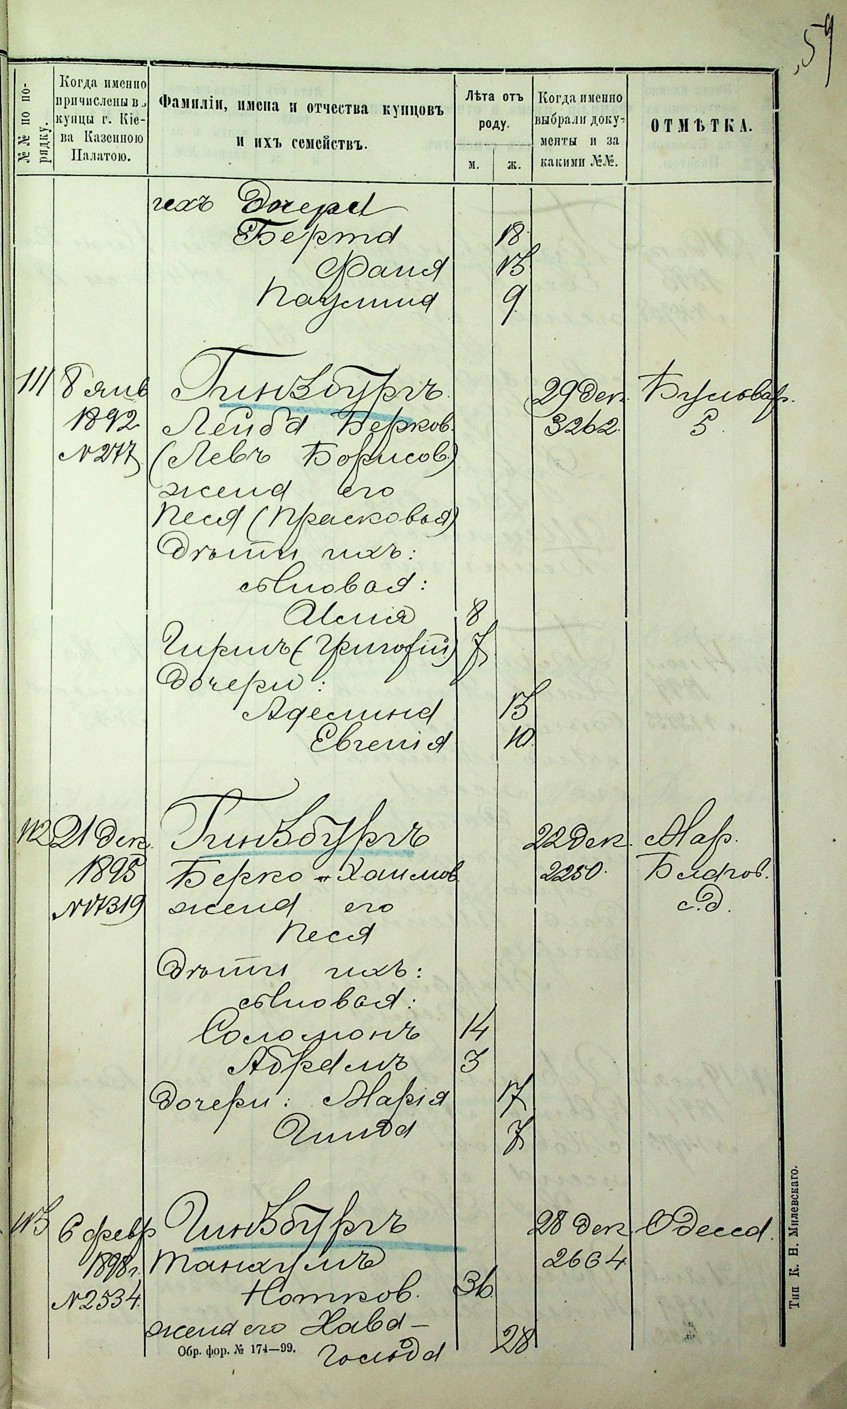 59
№№ по порядку.
Когда именно
причислены въ
купцы г. Кіе-
ва Казенною
Палатою.
Фамиліи, имена и отчества купцовъ
и ихъ семействъ.
Лѣта отъ
роду.
м. ж.
Когда именно
выбрали доку-
менты и за
какими №№.
ОТМѢТКА.
ихъ Дочери
Берта 18
Фаня 13
Паулина 9
111 8 янв Гинзбургъ 29 Дек. Бульвар.
1892 Лейба Берков. 3262. 5
№ 277 (Левъ Борисов.)
жена его
Песя (Прасковья)
Дѣти ихъ:
сыновья:
Илия 8
Гиршъ (Григорій) 7
Дочери:
Аделина 13
Евгенія 10
112 21 Дек. Гинзбургъ 22 Дек. Мар.
1895 Берко-Хаимов 2250. Благов.
№ 17319 жена его с.д.
Песя
Дѣти ихъ:
сыновья:
Соломонъ 14
Абрамъ 3
Дочери: Марія 17
Гинда 7
113 6 февр Гинзбургъ 28 Дек. Одесса.
1898 г. Танхумъ 2664
№ 2534 Нотков. 36
жена его Хава-
Гольда 28
Обр. фор. № 174—99.
Тип К. Н. Милевскаго.